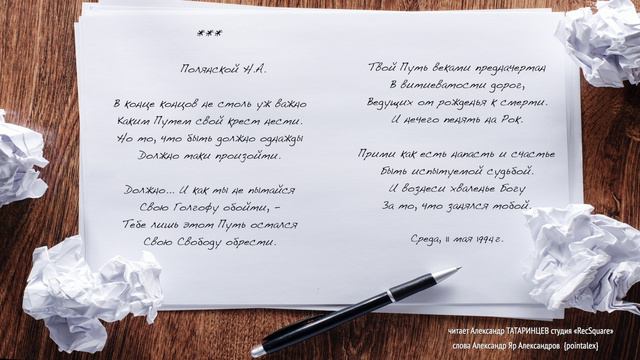 ***
Полянской Н.А.
В конце концов не столь уж важно
Каким Путем свой крест нести.
Но то, что быть должно однажды
Должно таки произойти.
Должно... И как ты не пытайся
Свою Голгофу обойти, –
Тебе лишь этот Путь остался
Свою Свободу обрести.
Твой Путь веками предначертан
В витиеватости дорог,
Ведущих от рожденья к смерти.
И нечего пенять на Рок.
Прими как есть напасть и счастье
Быть испытуемой судьбой.
И вознеси хваленье Богу
За то, что занялся тобой.
Среда, 11 мая 1994г.
читает Александр ТАТАРИНЦЕВ студия «RecSquare»
слова Александр Яр Александров {pointalex}